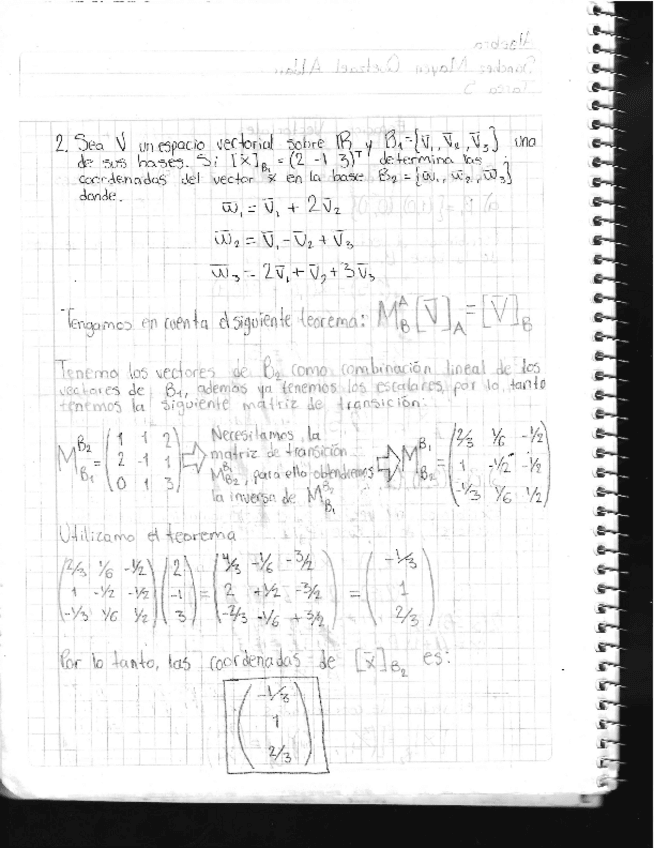 2. Sea V un espacio vectorial sobre IR y B₁={v̄₁, v̄₂, v̄₃} una
de sus bases. Si [x̄]_B₁ = (2 -1 3)ᵀ, determina las
coordenadas del vector x̄ en la base B₂={w̄₁, w̄₂, w̄₃}
donde.
w̄₁ = v̄₁ + 2v̄₂
w̄₂ = v̄₁ - v̄₂ + v̄₃
w̄₃ = 2v̄₁ + v̄₂ + 3v̄₃
Tengamos en cuenta el siguiente teorema: M^A_B [v̄]_A = [v̄]_B
Tenemo los vectores de B₂ como combinación lineal de los
vectores de B₁, ademas ya tenemos los escalares, por lo tanto
tenemos la siguiente matriz de transición:
M^B₂_B₁ = (1 1 2; 2 -1 1; 0 1 3) ⇨ Necesitamos la matriz de transición M^B₁_B₂, para ello obtendremos la inversa de M^B₂_B₁ ⇨ M^B₁_B₂ = (2/3 1/6 -1/2; 1 -1/2 -1/2; -1/3 1/6 1/2)
Utilizamo el teorema
(2/3 1/6 -1/2; 1 -1/2 -1/2; -1/3 1/6 1/2) (2; -1; 3) = (4/3 -1/6 -3/2; 2 +1/2 -3/2; -2/3 -1/6 +3/2) = (-1/3; 1; 2/3)
Por lo tanto, las coordenadas de [x̄]_B₂ es:
(-1/3; 1; 2/3)